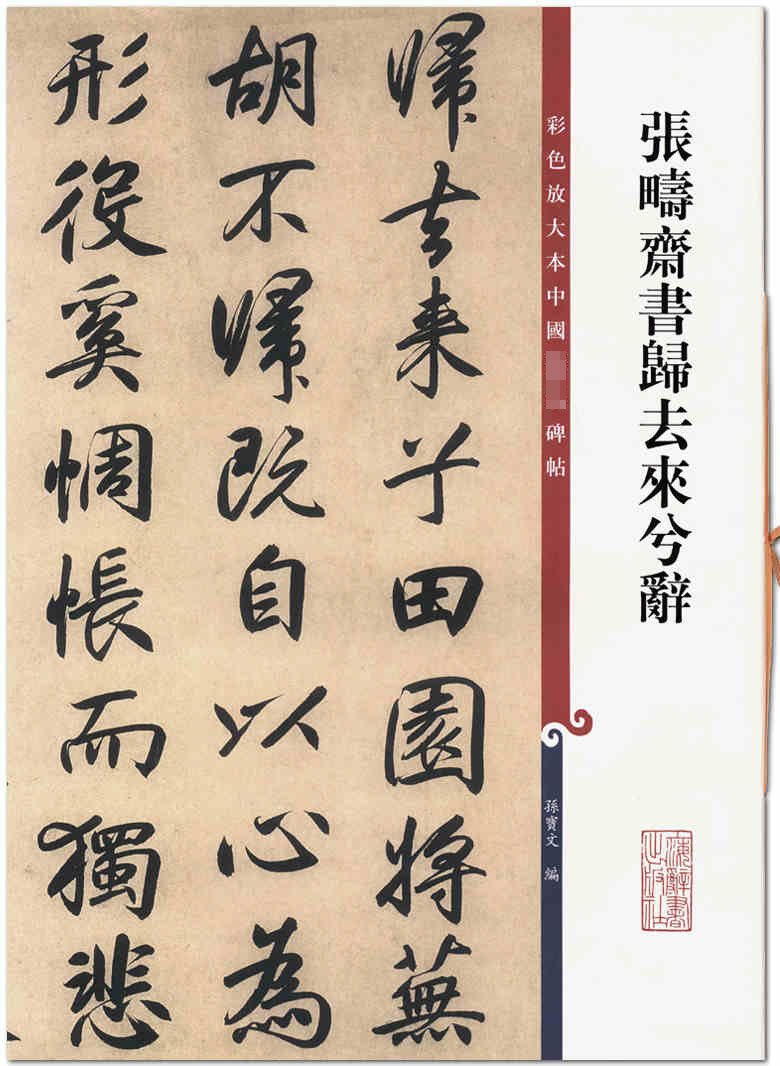 張疇齋書歸去來兮辭
彩色放大本中國
碑帖
孫寶文 編
歸去来兮田園將蕪
胡不歸既自以心為
形役奚惆悵而獨悲